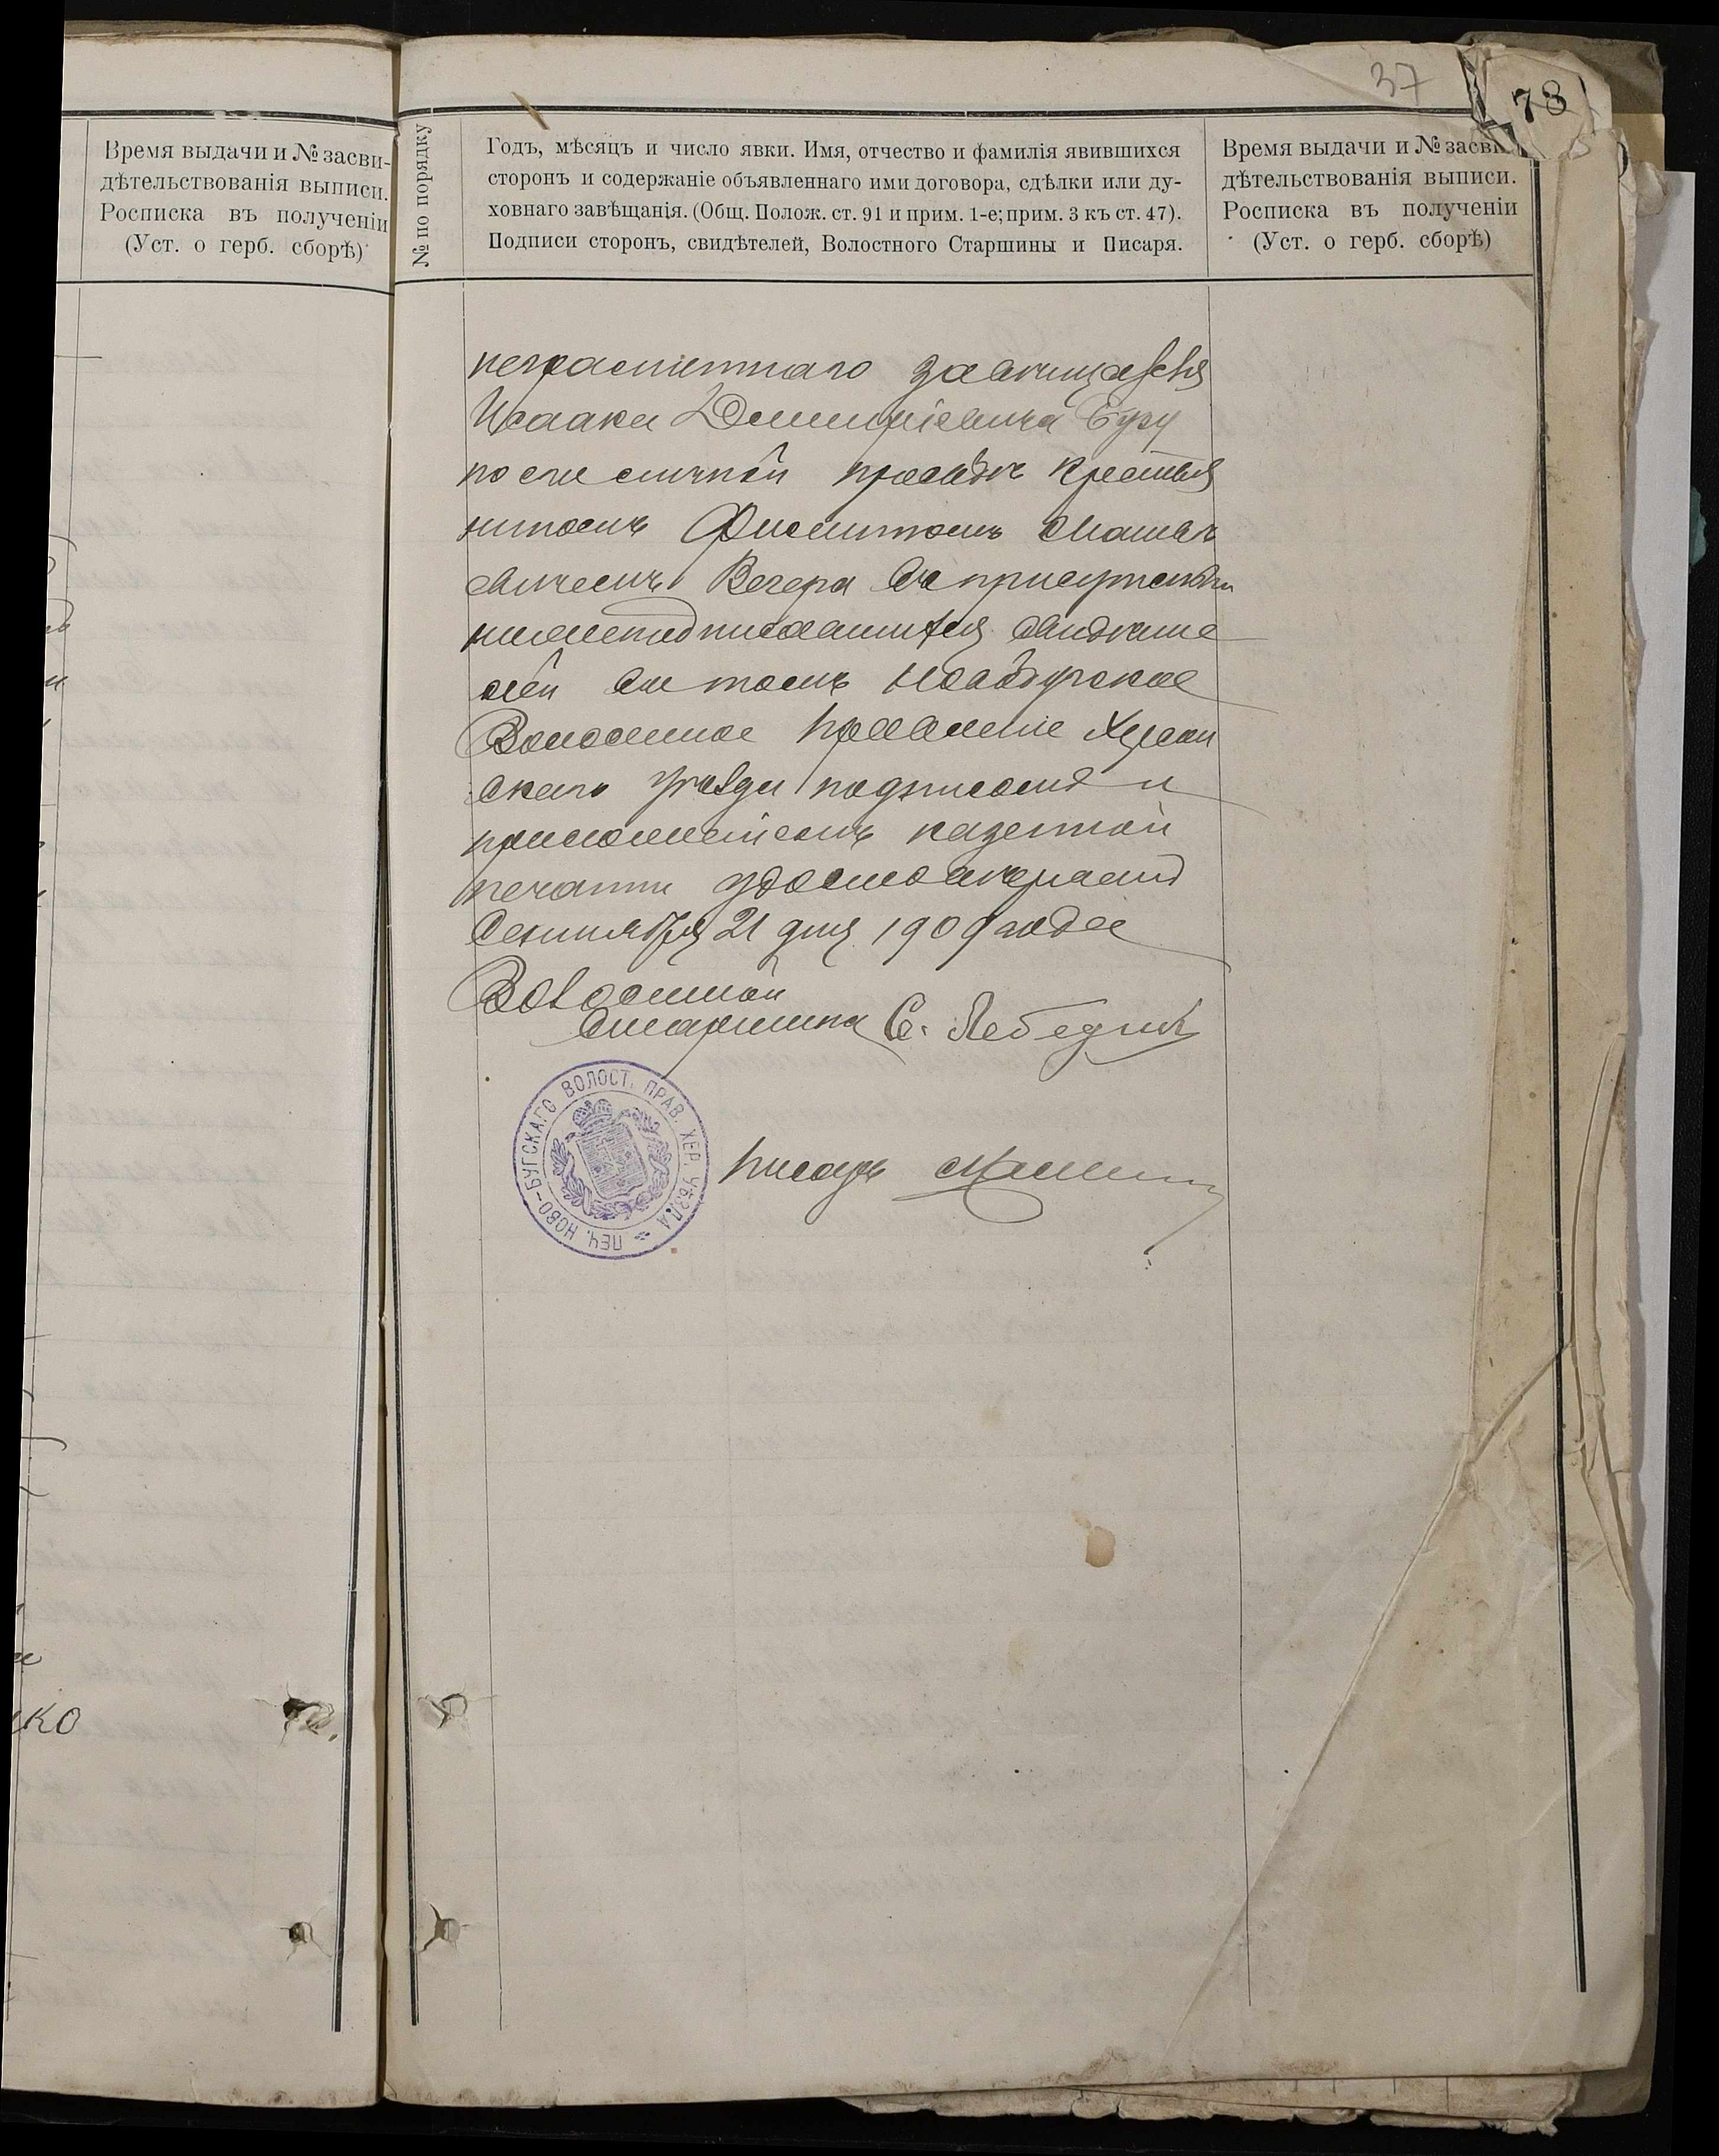 37
78
Время выдачи и № засви-
дѣтельствованія выписи.
Росписка въ полученіи
(Уст. о герб. сборѣ)
№ по порядку
Годъ, мѣсяцъ и число явки. Имя, отчество и фамилія явившихся
сторонъ и содержаніе объявленнаго ими договора, сдѣлки или ду-
ховнаго завѣщанія. (Общ. Полож. ст. 91 и прим. 1-е; прим. 3 къ ст. 47).
Подписи сторонъ, свидѣтелей, Волостного Старшины и Писаря.
Время выдачи и № засви
дѣтельствованія выписи.
Росписка въ полученіи
(Уст. о герб. сборѣ)
неграмотнаго завѣщателя
Исаака Дементіевича
по его личной просьбѣ крестья
ниномъ Филиппомъ
Вечера въ присутствіи
нижеподписавшихся свидѣте
лей въ томъ Новобугское
Волостное Правленіе Херсон
скаго уѣзда подписомъ и
приложеніемъ казенной
печати удостовѣряетъ
Сентября 21 дня 1909 года
Волостной
Старшина С. Лебедин
ПЕЧ. НОВО-БУГСКАГО ВОЛОСТ. ПРАВ. ХЕР. УѢЗДА
Писарь
ко